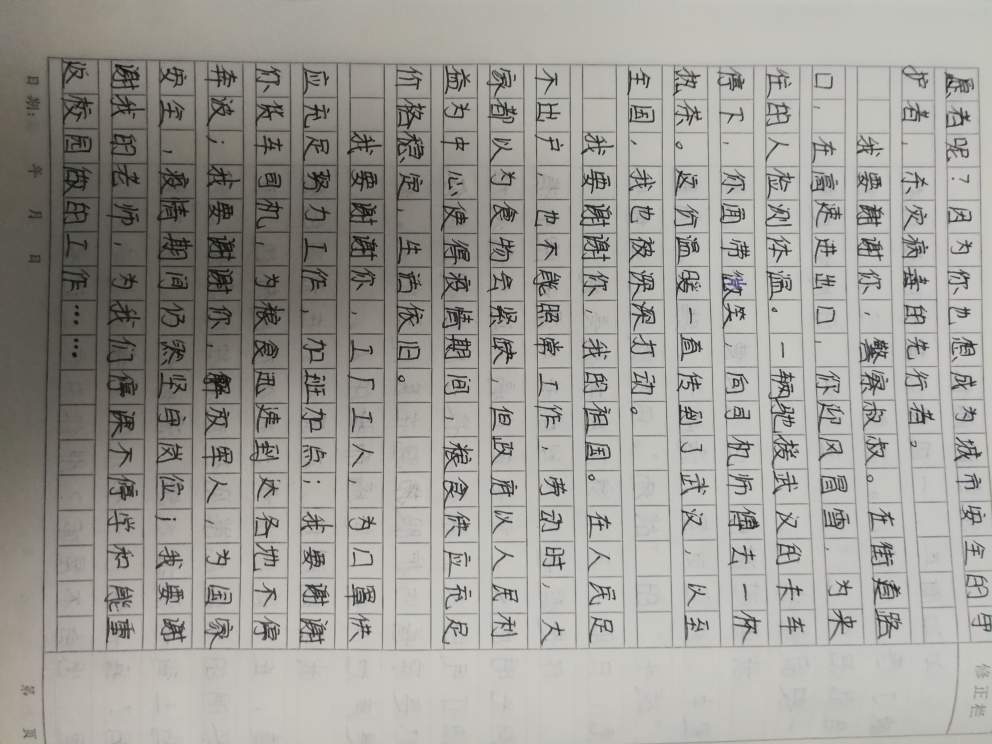 愿者呢？因为你也想成为城市安全的守
护者，杀灾病毒的先行者。
我要谢谢你，警察叔叔。在街道路
口，在高速进出口，你迎风冒雪，为来
往的人检测体温。一辆驰援武汉的卡车
停下，你面带微笑，向司机师傅去一杯
热茶。这份温暖一直传到了武汉，以至
全国，我也被深深打动。
我要谢谢你，我的祖国。在人民足
不出户，也不能照常工作，劳动时，大
家都以为食物会紧缺，但政府以人民利
益为中心使得疫情期间，粮食供应充足
价格稳定，生活依旧。
我要谢谢你，工厂工人，为口罩供
应充足努力工作，加班加点；我要谢谢
你货车司机，为粮食迅速到达各地不停
奔波；我要谢谢你，解放军人，为国家
安全，疫情期间仍然坚守岗位；我要谢
谢我的老师，为我们停课不停学和能重
返校园做的工作……
修正栏
日期： 年 月 日
第 页